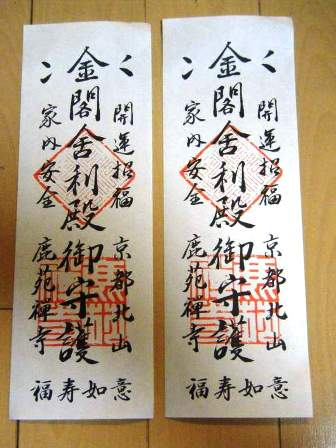 開運招福 京都北山
金閣舎利殿御守護
家内安全 鹿苑禅寺
福寿如意
開運招福 京都北山
金閣舎利殿御守護
家内安全 鹿苑禅寺
福寿如意